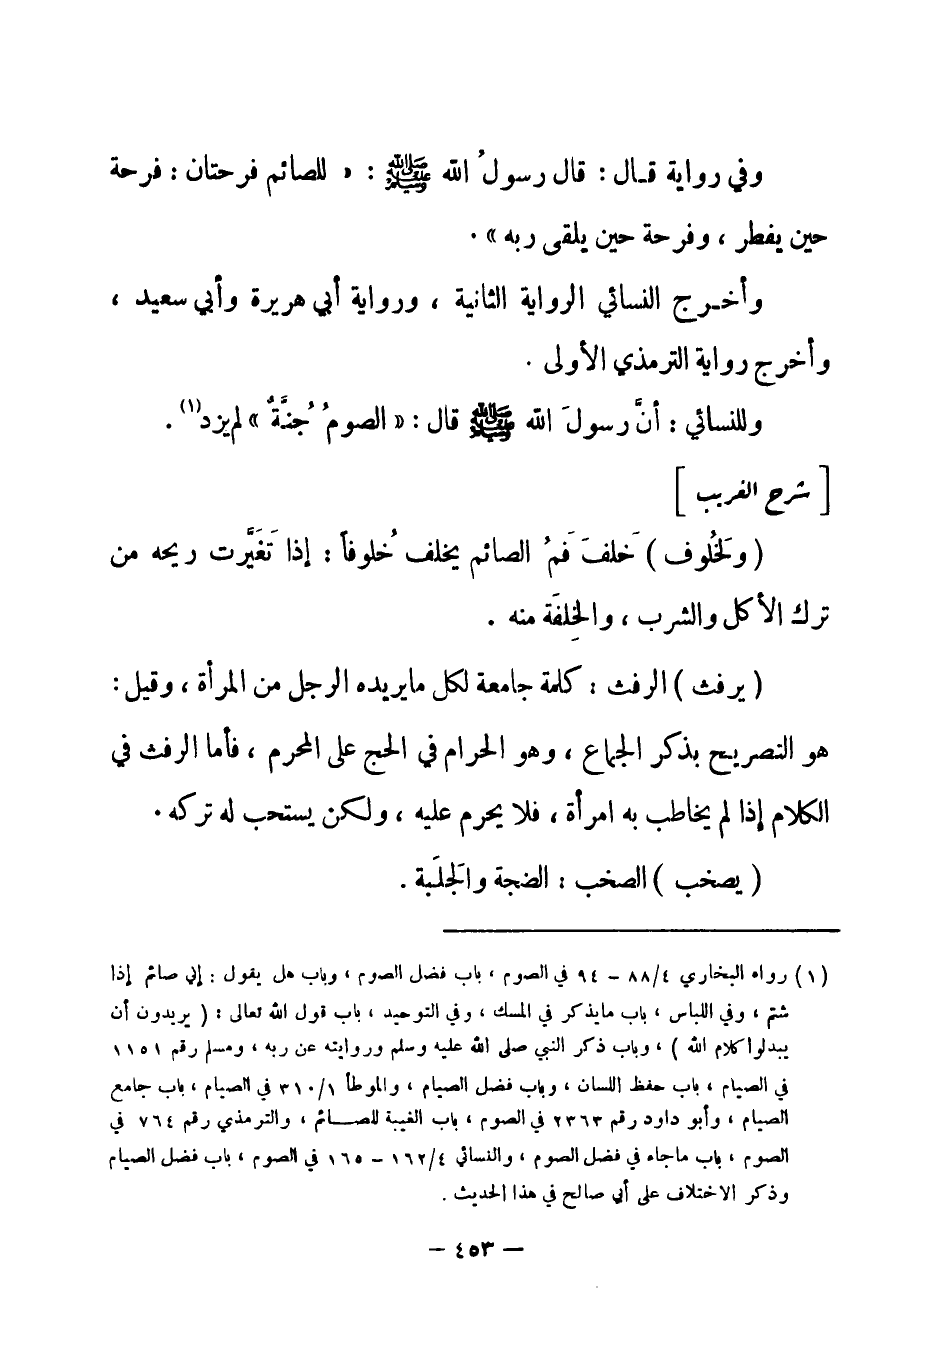 وفي رواية قـال : قال رسولُ الله ﷺ : « للصائم فرحتان : فرحة
حين يفطر ، وفرحة حين يلقى ربه » .
وأخـرج النسائي الرواية الثانية ، ورواية أبي هريرة وأبي سعيد ،
وأخرج رواية الترمذي الأولى .
وللنسائي : أنَّ رسولَ الله ﷺ قال : « الصومُ جُنَّةٌ » لم يزد(١) .
[ شرح الغريب ]
( ولَخُلوف ) خَلفَ فَمُ الصائم يخلف خُلوفاً : إذا تَغَيَّرت ريحه من
ترك الأكل والشرب ، والخِلفَة منه .
( يرفث ) الرفث : كلمة جامعة لكل مايريده الرجل من المرأة ، وقيل :
هو التصريح بذكر الجماع ، وهو الحرام في الحج على المحرم ، فأما الرفث في
الكلام إذا لم يخاطب به امرأة ، فلا يحرم عليه ، ولكن يستحب له تركه .
( يصخب ) الصخب : الضجة والجَلَبة .
(١) رواه البخاري ٨٨/٤ – ٩٤ في الصوم ، باب فضل الصوم ، وباب هل يقول : إني صائم إذا
شتم ، وفي اللباس ، باب مايذكر في المسك ، وفي التوحيد ، باب قول الله تعالى : ( يريدون أن
يبدلوا كلام الله ) ، وباب ذكر النبي صلى الله عليه وسلم وروايته عن ربه ، ومسلم رقم ١١٥١
في الصيام ، باب حفظ اللسان ، وباب فضل الصيام ، والموطأ ٣١٠/١ في الصيام ، باب جامع
الصيام ، وأبو داود رقم ٢٣٦٣ في الصوم ، باب الغيبة للصـــائم ، والترمذي رقم ٧٦٤ في
الصوم ، باب ماجاء في فضل الصوم ، والنسائي ١٦٢/٤ – ١٦٥ في الصوم ، باب فضل الصيام
وذكر الاختلاف على أبي صالح في هذا الحديث .
– ٤٥٣ –